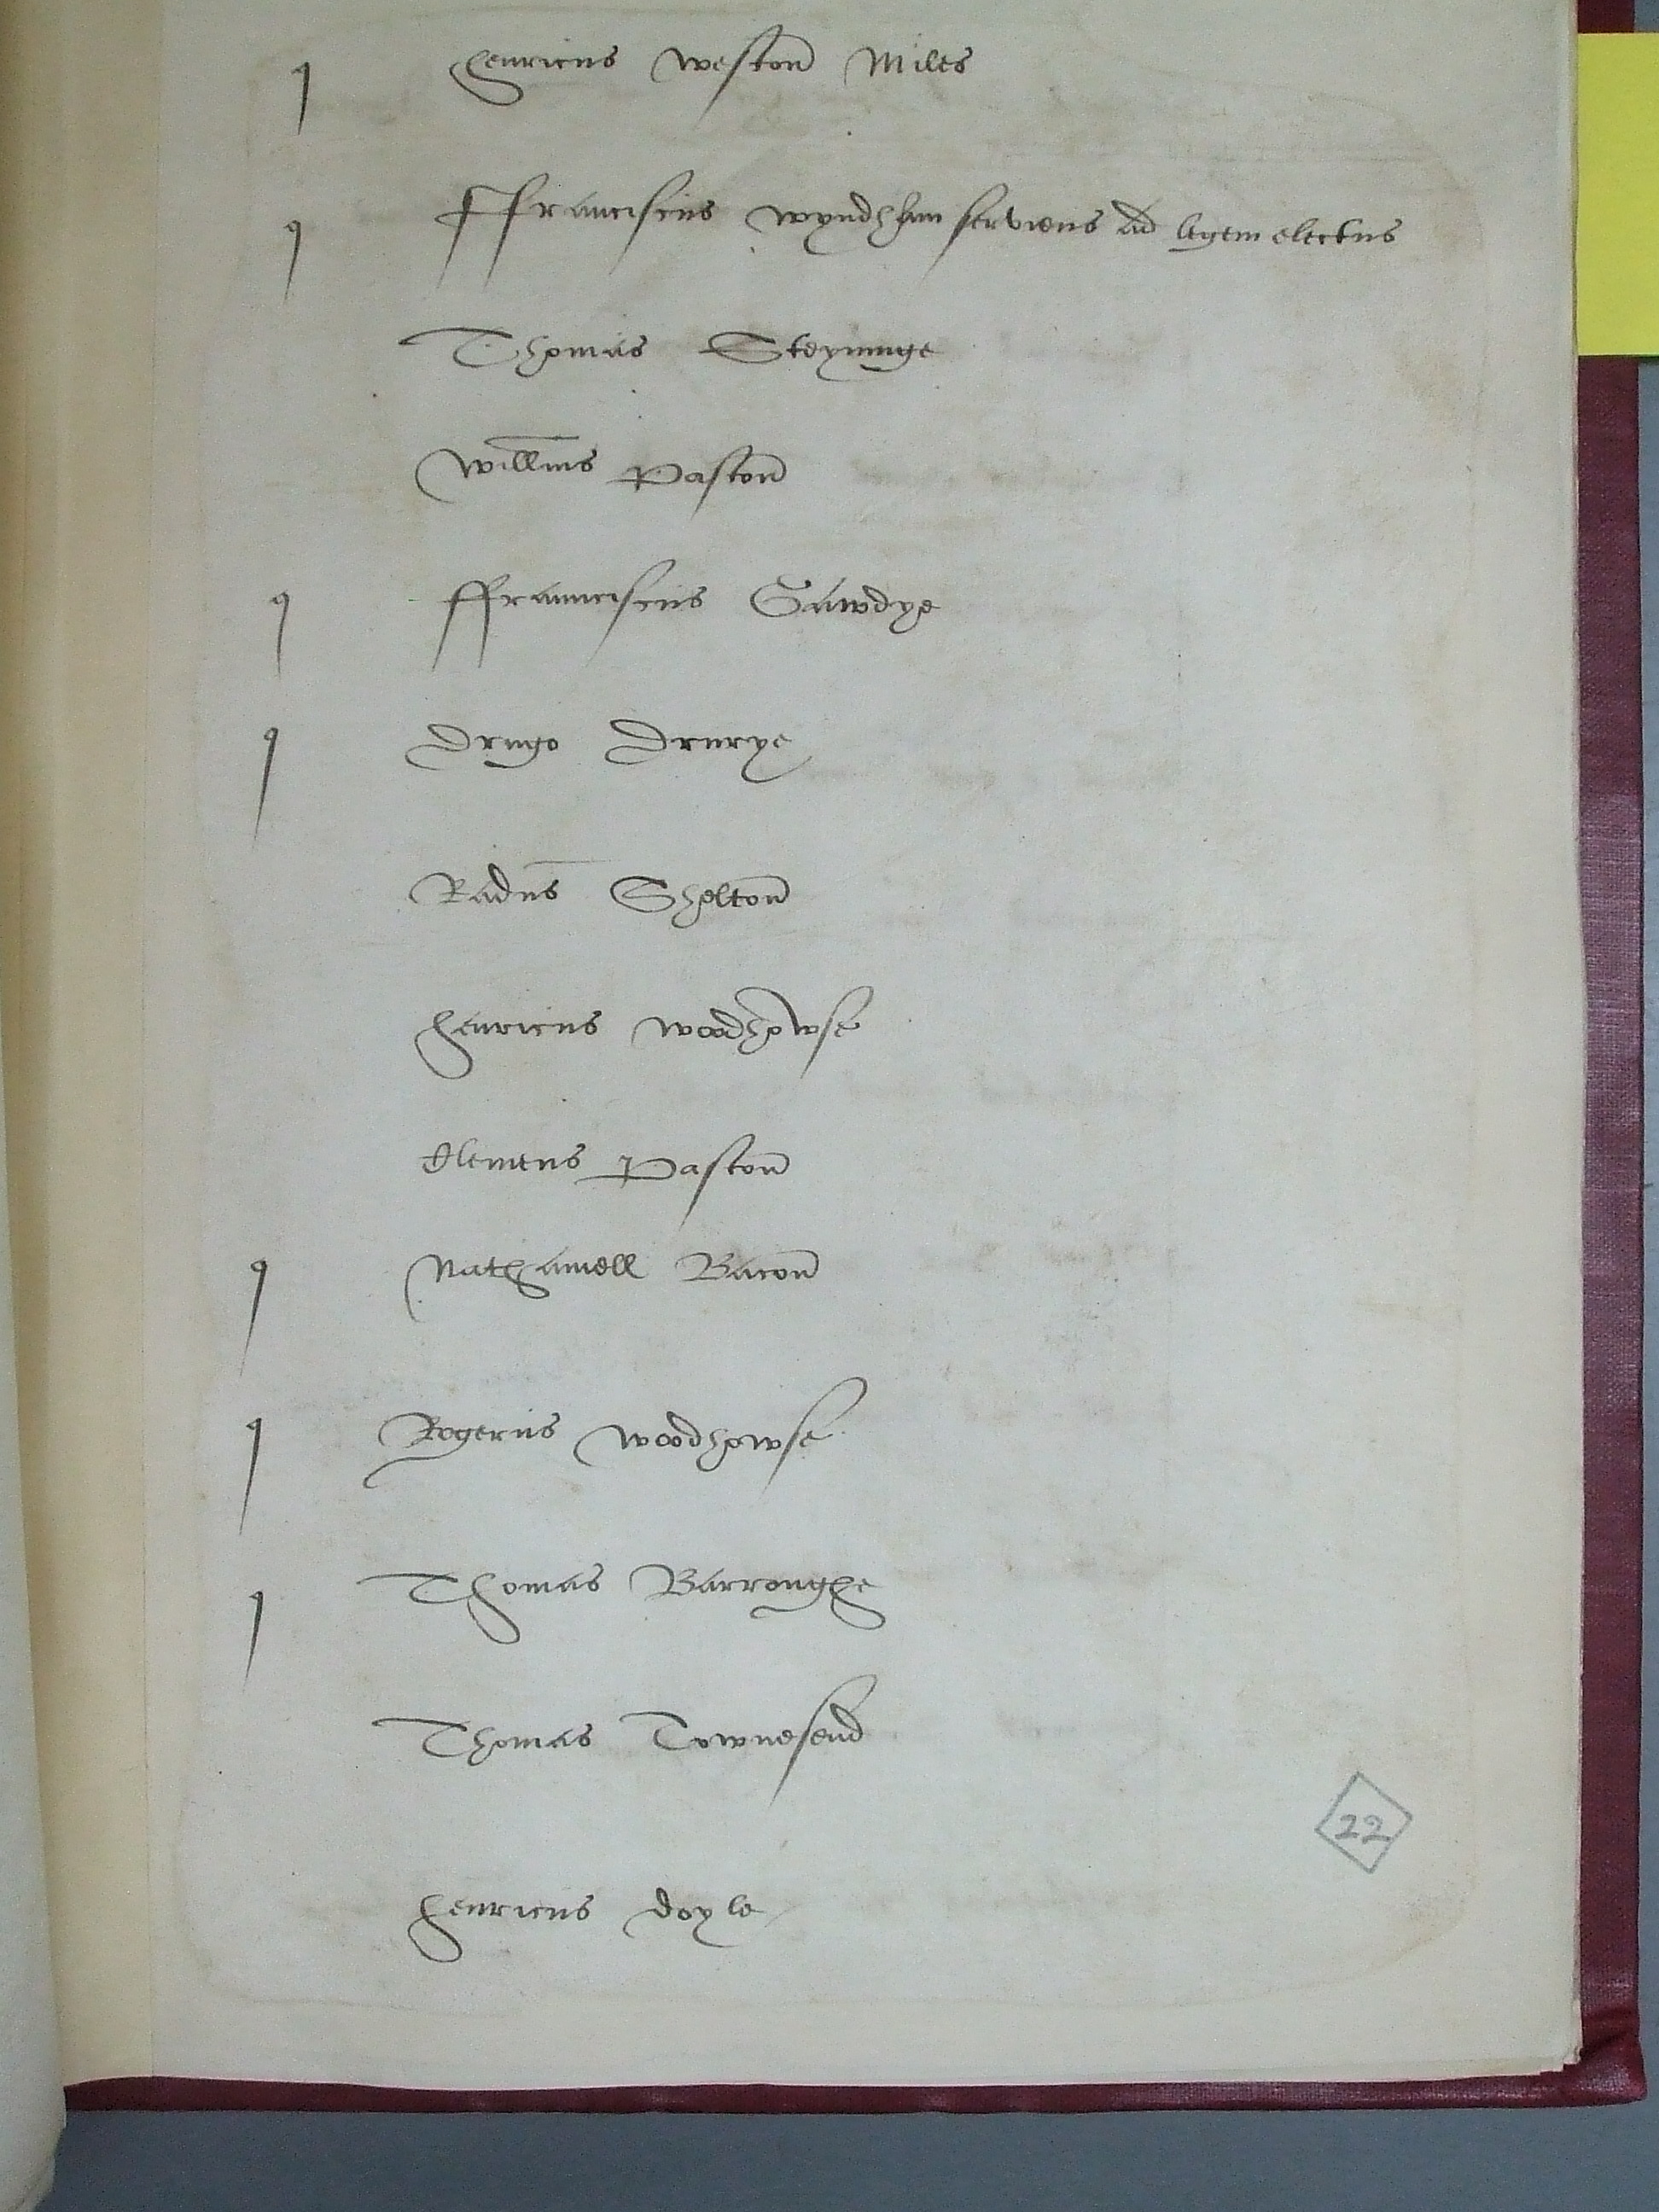 henricus weston Miles
ffranciscus wyndham serviens ad legem electus
Thomas Steyninge
Willms Paston
ffranciscus Gawdye
Drugo Drurye
Radus Shelton
henricus woodhowse
Clemens Paston
Nathaniell Bacon
Rogerus woodhowse
Thomas Barroughe
Thomas Townesend
22
henricus doyle